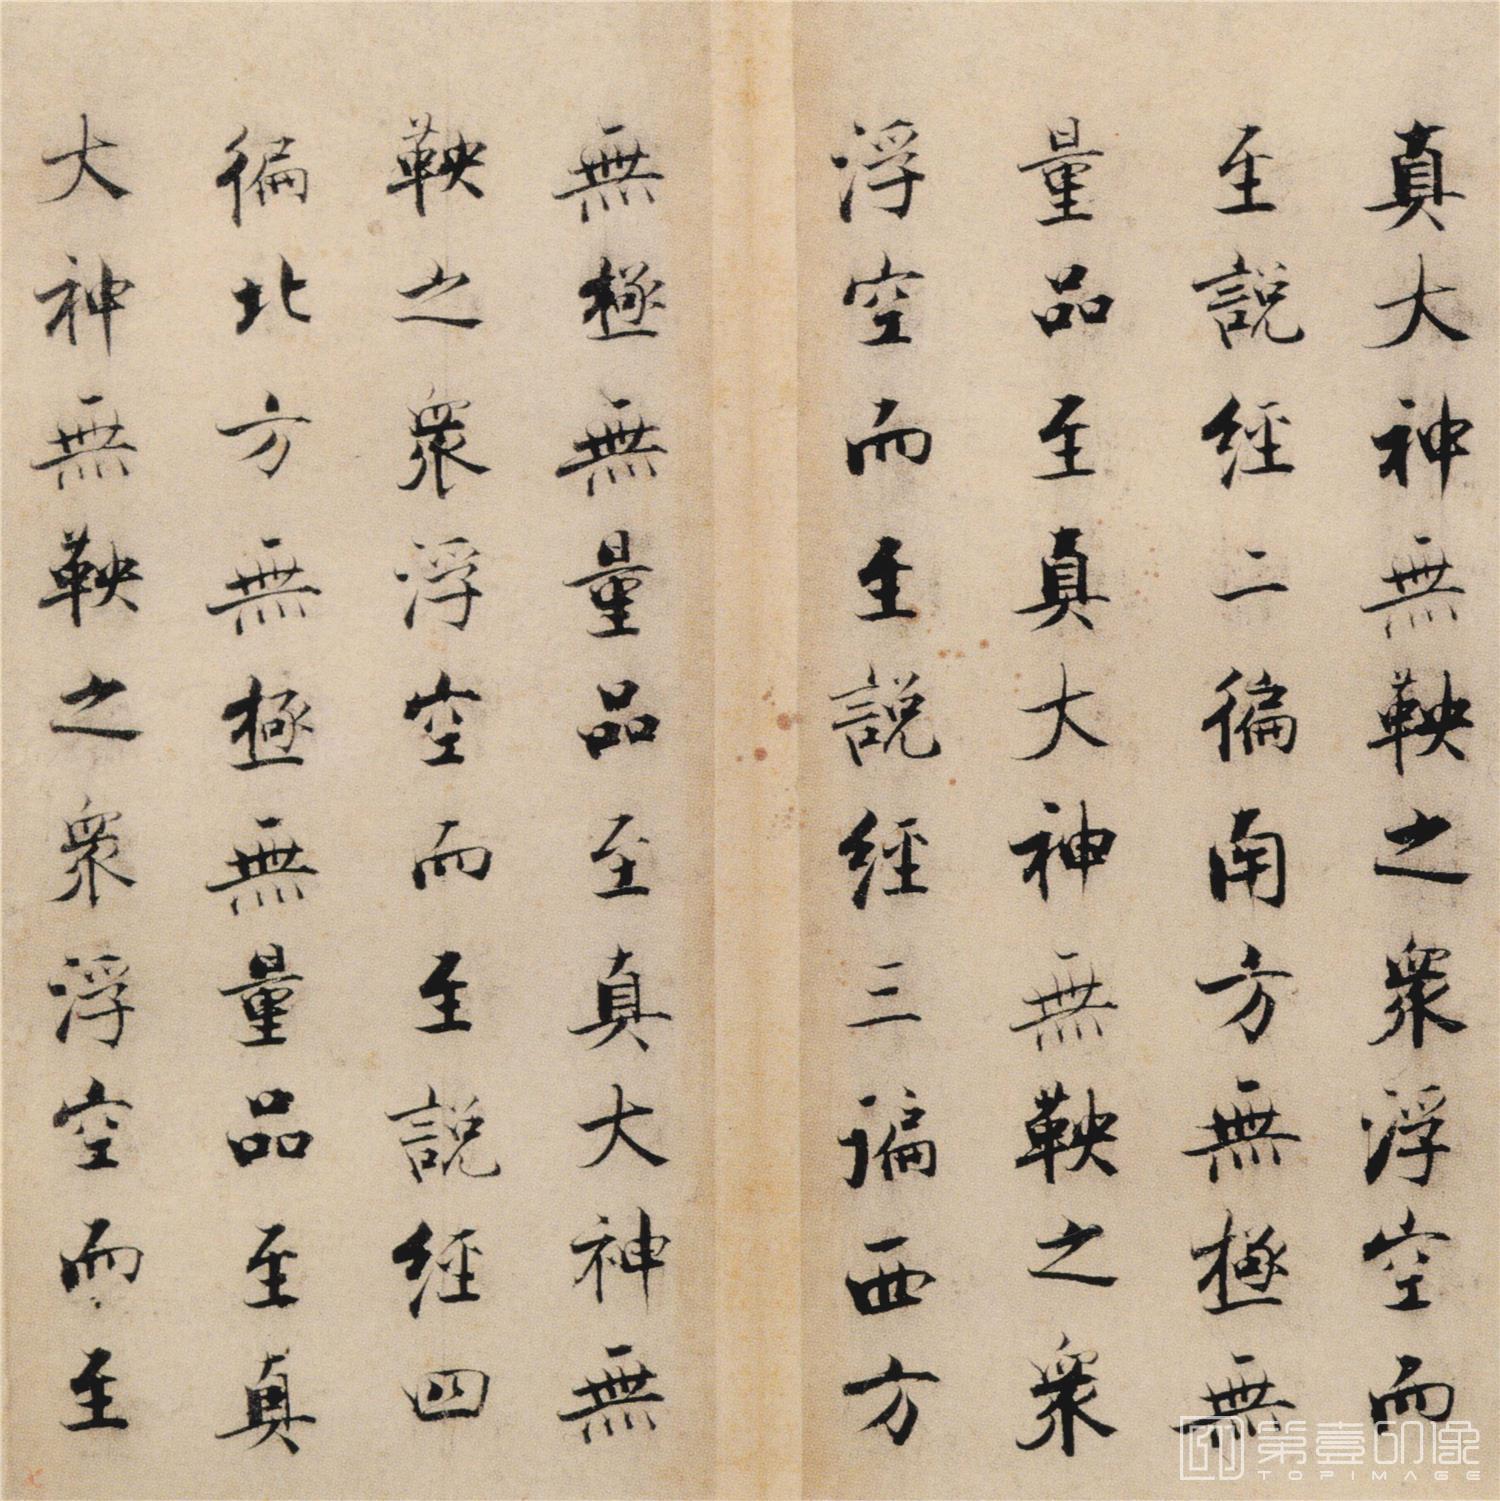 真大神無鞅之衆浮空而
至說經二徧南方無極無
量品至真大神無鞅之衆
浮空而至說經三諞西方
無極無量品至真大神無
鞅之衆浮空而至說經四
徧北方無極無量品至真
大神無鞅之衆浮空而至
第壹印像
TOPIMAGE